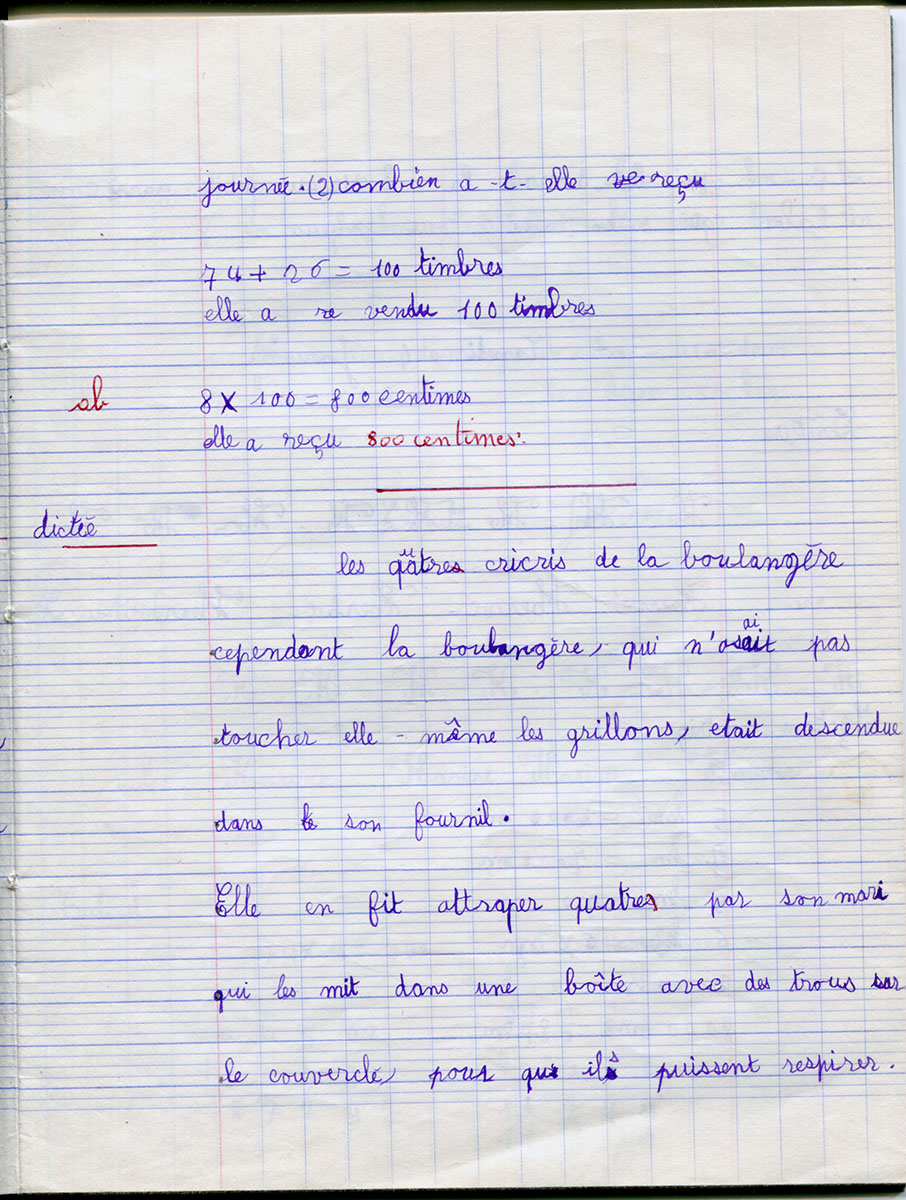 journée. (2) combien a -t- elle ve reçu
74 + 26 = 100 timbres
elle a re vendu 100 timbres
ab 8 X 100 = 800 centimes
elle a reçu 800 centimes.
dictée
les quâtres cricris de la boulangère
cependant la boulangère, qui n'osait pas
toucher elle - même les grillons, etait descendue
dans le son fournil.
Elle en fit attraper quatres par son mari
qui les mit dans une boîte avec des trous sur
le couvercle, pour qu' ils puissent respirer.